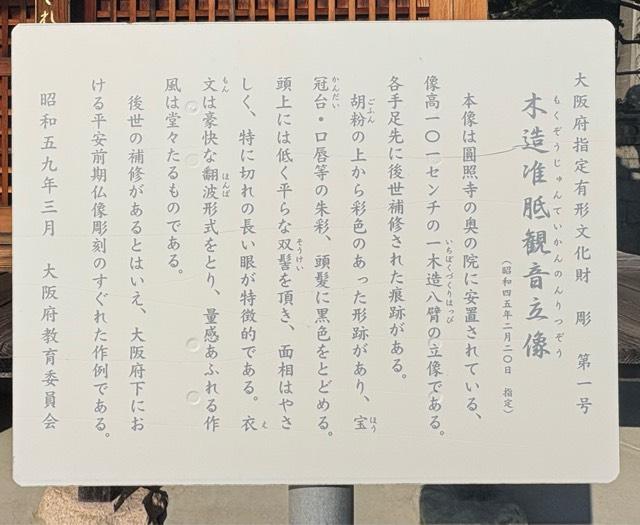 大阪府指定有形文化財　彫　第一号
木造准胝観音立像
もくぞうじゅんていかんのんりつぞう
（昭和四五年二月二〇日　指定）
本像は圓照寺の奥の院に安置されている、
像高一〇一センチの一木造八臂の立像である。
いちぼくづくりはっぴ
各手足先に後世補修された痕跡がある。
胡粉の上から彩色のあった形跡があり、宝
ごふん
ほう
冠台・口唇等の朱彩、頭髪に黒色をとどめる。
かんだい
頭上には低く平らな双髻を頂き、面相はやさ
そうけい
しく、特に切れの長い眼が特徴的である。衣
え
文は豪快な翻波形式をとり、量感あふれる作
もん
ほんぱ
風は堂々たるものである。
後世の補修があるとはいえ、大阪府下にお
ける平安前期仏像彫刻のすぐれた作例である。
昭和五九年三月　大阪府教育委員会